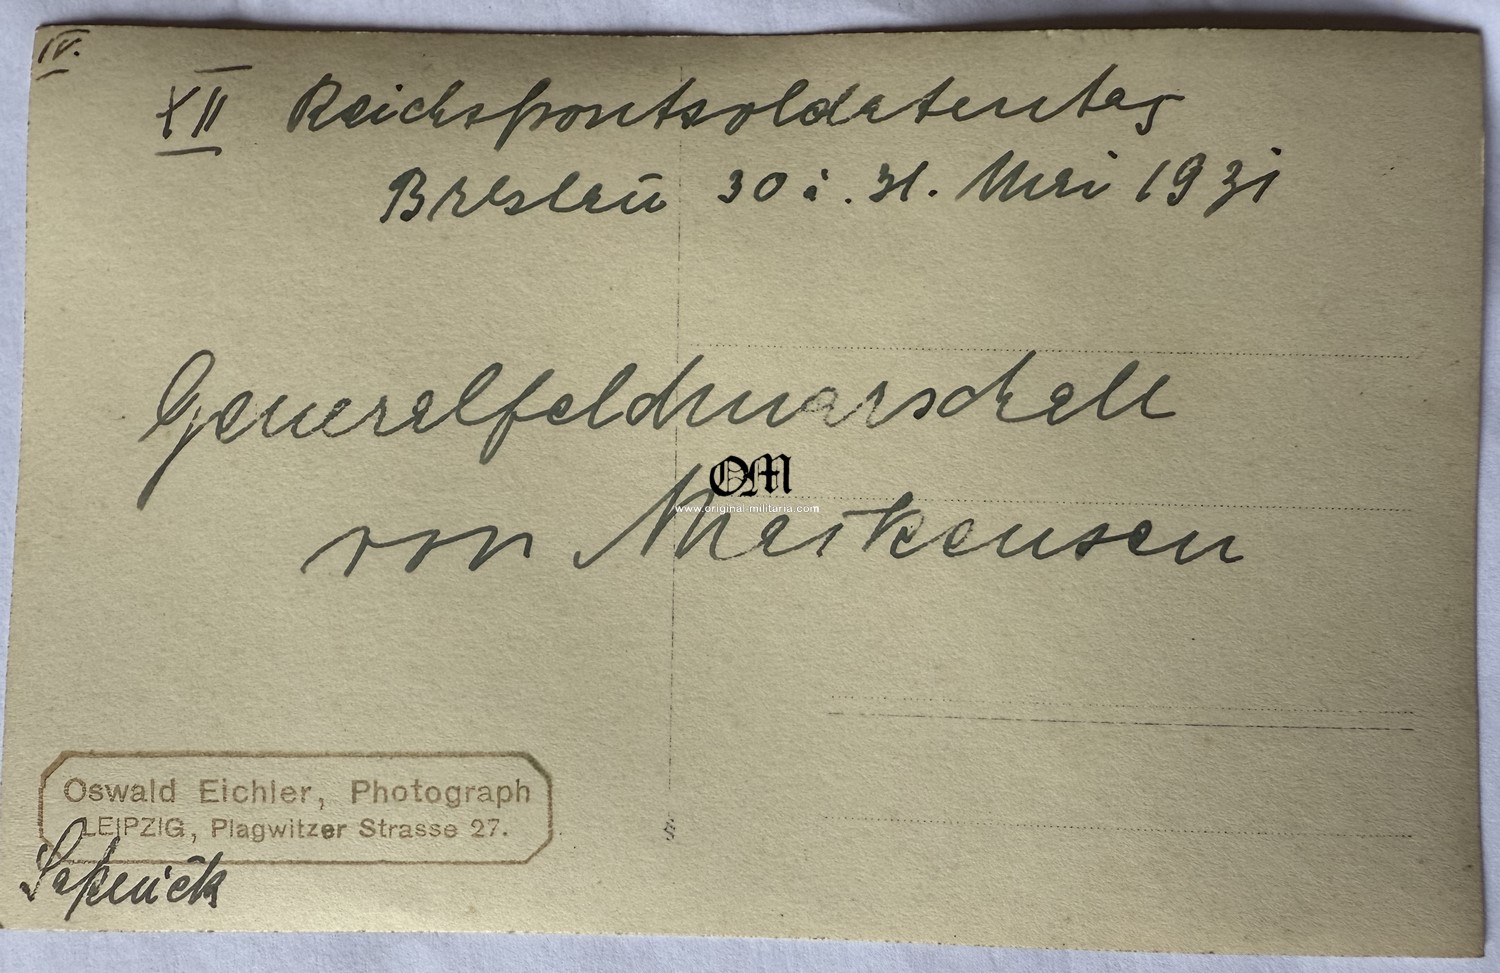 IV.
XII Reichsfrontsoldatentag
Breslau 30 i. 31. Mai 1931
Generalfeldmarschall
OM
www.original-militaria.com
von Mackensen
Oswald Eichler, Photograph
LEIPZIG, Plagwitzer Strasse 27.
§